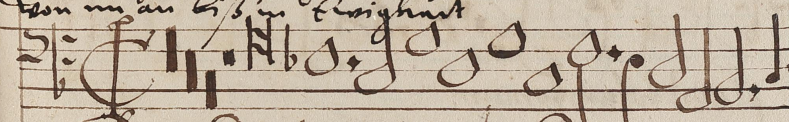 von nu an biß in Ewigkeit